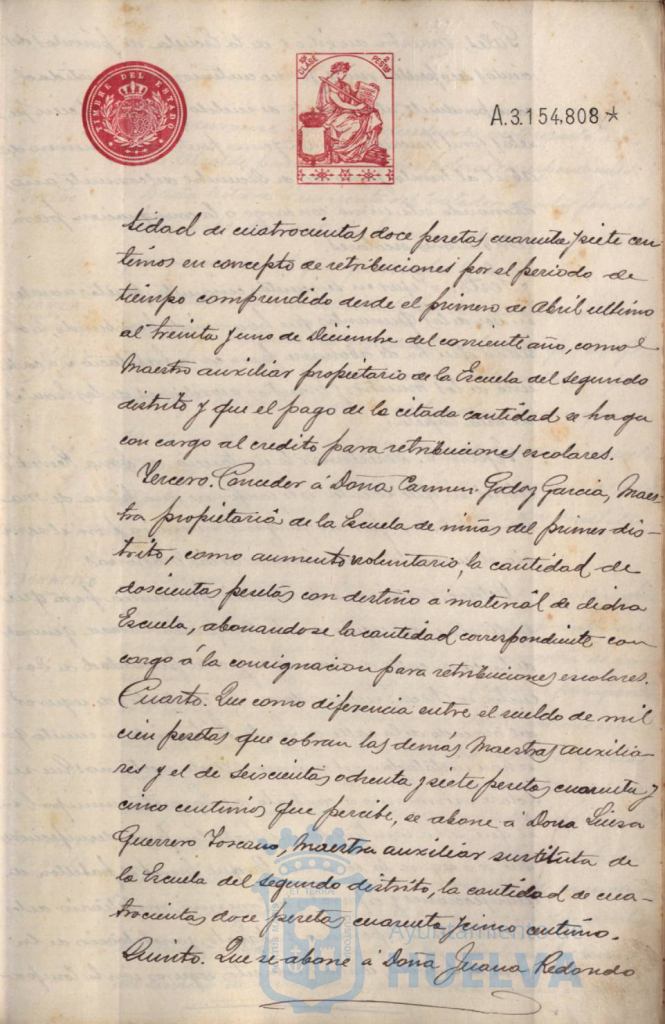 TIMBRE DEL ESTADO
CLASE
PESETAS
A.3.154.808 *
tidad de cuatrocientas doce pesetas cuarenta y siete cen
timos en concepto de retribuciones por el periodo de
tiempo comprendido desde el primero de Abril ultimo
al treinta y uno de Diciembre del corriente año, como
Maestro auxiliar propietario de la Escuela del segundo
distrito y que el pago de la citada cantidad se haga
con cargo al credito para retribuciones escolares.
Tercero. Conceder á Doña Carmen Godoy Garcia, Maes-
tra propietaria de la Escuela de niñas del primer dis-
trito, como aumento voluntario, la cantidad de
doscientas pesetas con destino á material de dicha
Escuela, abonandose la cantidad correspondiente con
cargo á la consignacion para retribuciones escolares.
Cuarto. Que como diferencia entre el sueldo de mil
cien pesetas que cobran las demás Maestras auxilia-
res y el de seiscientas ochenta y siete pesetas cuarenta y
cinco centimos que percibe, se abone á Doña Luisa
Guerrero Toscano, Maestra auxiliar sustituta de
la Escuela del segundo distrito, la cantidad de cua-
trocientas doce pesetas cuarenta y cinco centimo.
Quinto. Que se abone á Doña Juana Redondo
Ayuntamiento de
HUELVA